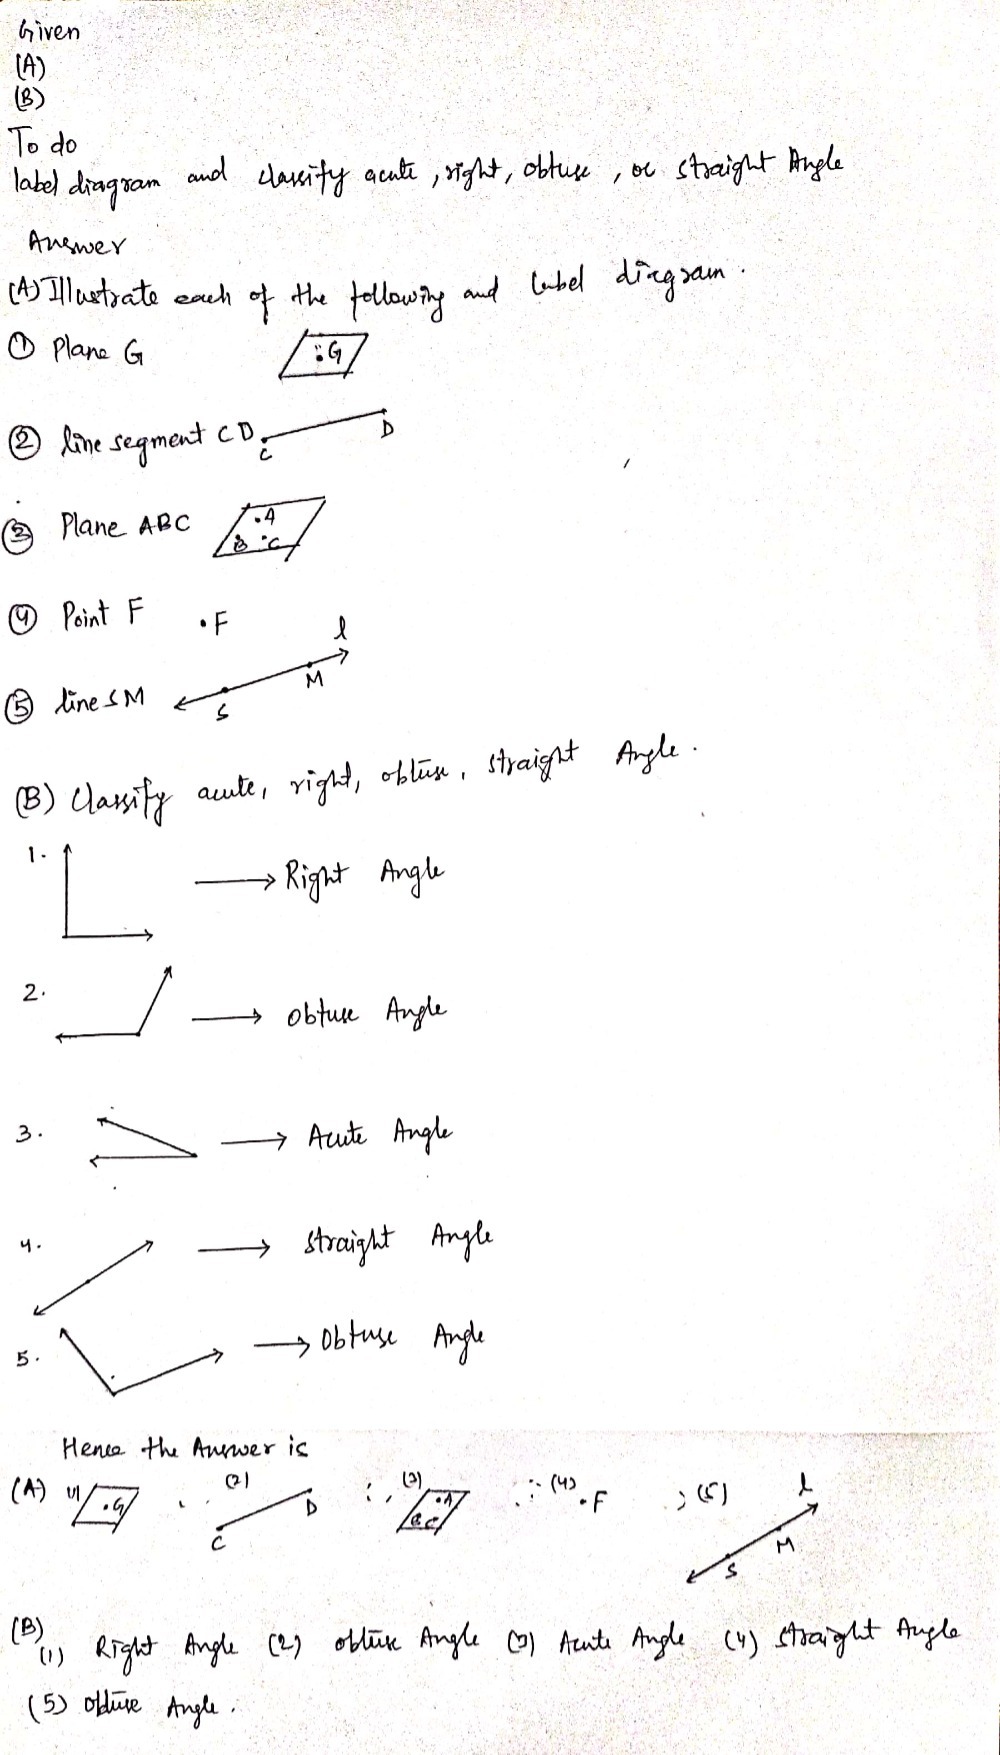 Given
(A)
(B)
To do
label diagram and classify acute, right, obtuse, or straight Angle
Answer
(A) Illustrate each of the following and label diagram.
① Plane G
:G
② line segment CD
C D
③ Plane ABC
.A
B .C
④ Point F .F
l
⑤ line SM
S M
(B) Classify acute, right, obtuse, straight Angle.
1. → Right Angle
2. → obtuse Angle
3. → Acute Angle
4. → straight Angle
5. → Obtuse Angle
Hence the Answer is
(A) (1) .G (2) C D (3) .A B C (4) .F ; (5) S M l
(B) (1) Right Angle (2) obtuse Angle (3) Acute Angle (4) straight Angle
(5) obtuse Angle.